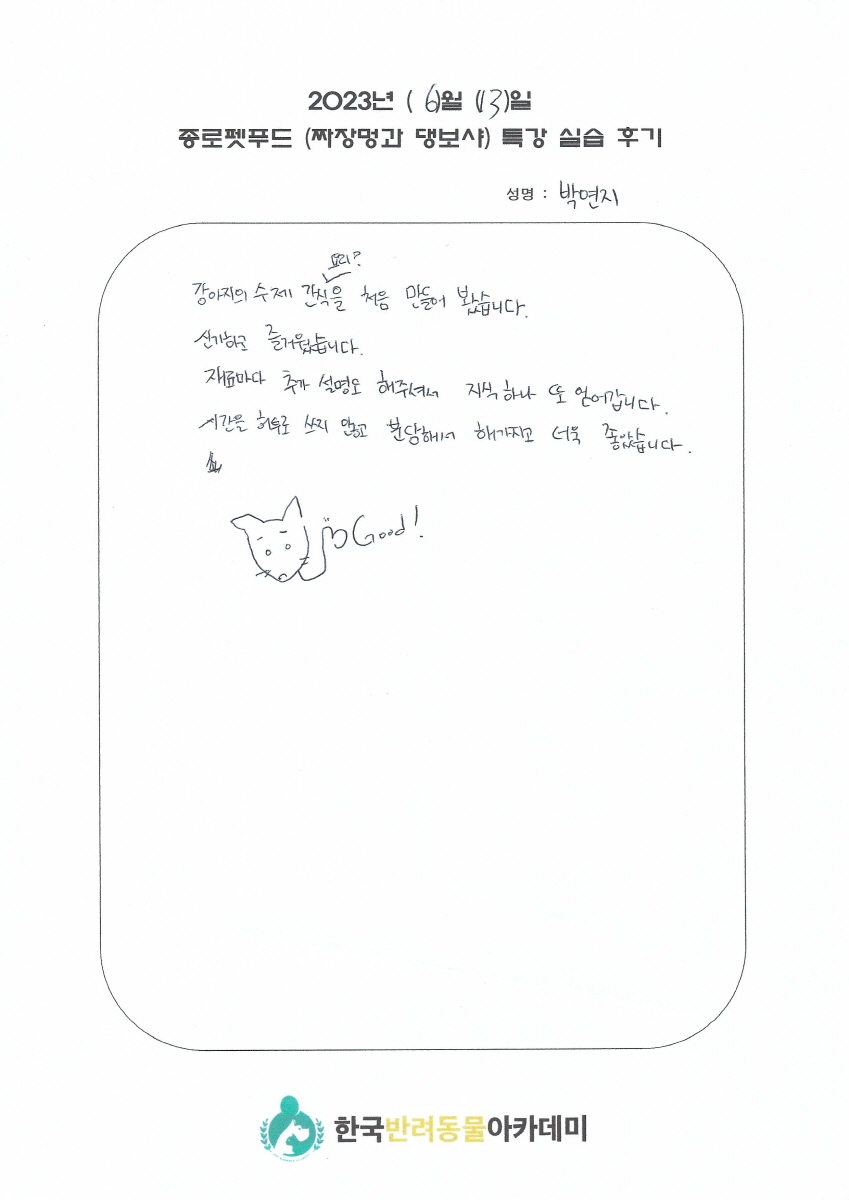 2023년 ( 6)월 (13)일
종로펫푸드 (짜장멍과 댕보샤) 특강 실습 후기
성명 : 박연지
요리?
강아지의 수제 간식을 처음 만들어 봤습니다.
신기하고 즐거웠습니다.
재료마다 추가 설명도 해주셔서 지식 하나 또 얻어갑니다.
시간을 허투로 쓰지 않고 분담해서 해가지고 더욱 좋았습니다.
Good!
한국반려동물아카데미